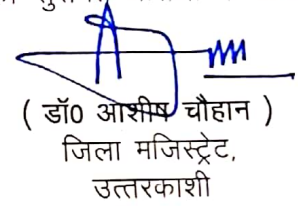 ( डॉ0 आशीष चौहान )
जिला मजिस्ट्रेट,
उत्तरकाशी